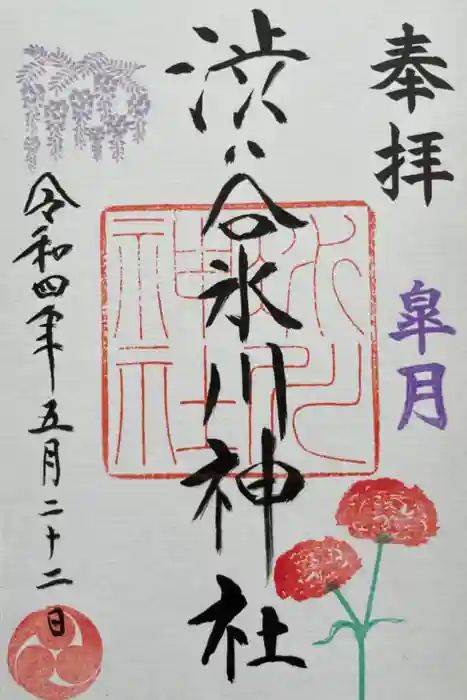 奉拝
皐月
渋谷氷川神社
令和四年五月二十二日
氷川神社